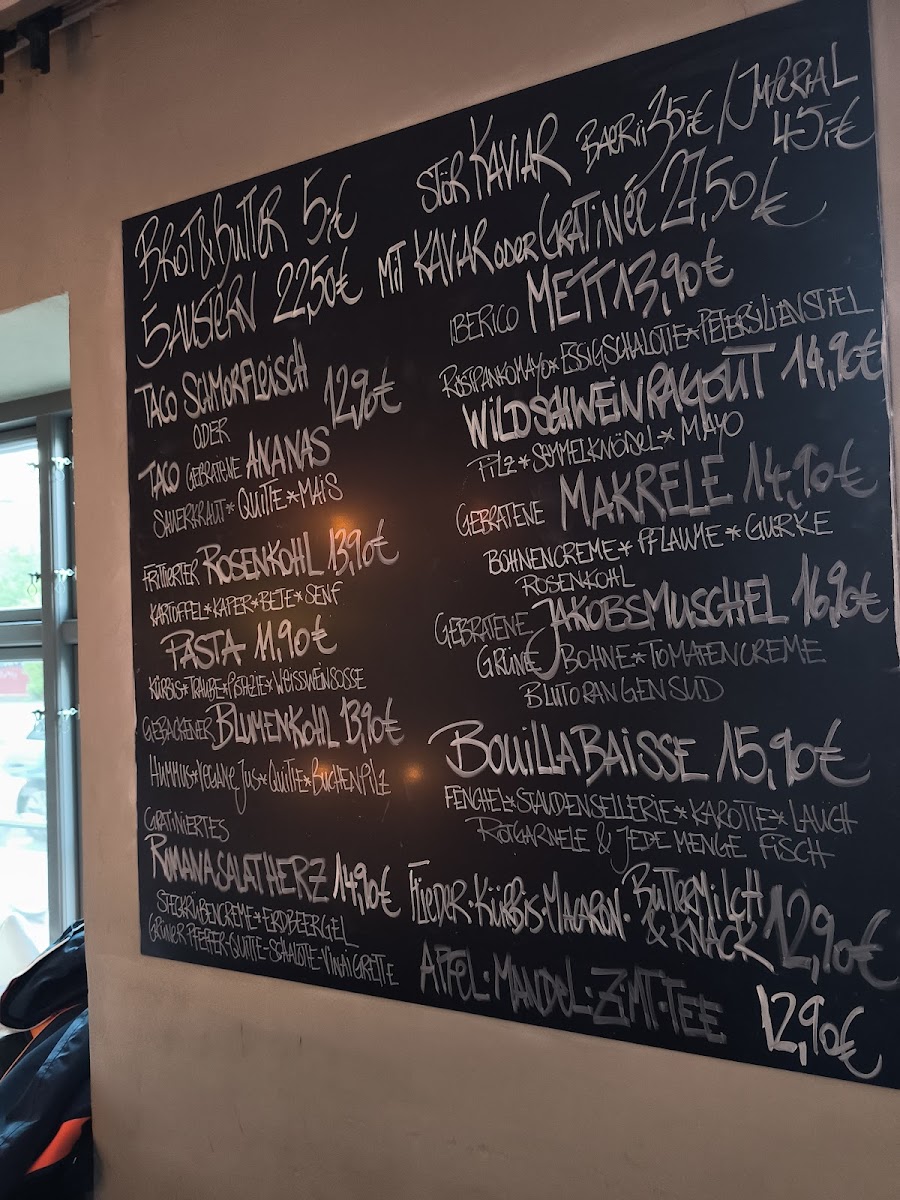 BROT & BUTTER 5,-€
STÖR KAVIAR BAERII 35,-€ / IMPERIAL 45,-€
5 AUSTERN 22,50€ MIT KAVIAR ODER GRATINÉE 27,50€
TACO SCHMORFLEISCH
ODER 12,90€
TACO GEBRATENE ANANAS
SAUERKRAUT * QUITTE * MAIS
FRITTIERTER ROSENKOHL 13,90€
KARTOFFEL * KAPER * BETE * SENF
PASTA 11,90€
KÜRBIS * TRAUBE * PISTAZIE * WEISSWEINSOSSE
GEBACKENER BLUMENKOHL 13,90€
HUMMUS * VEGANE JUS * QUITTE * BUCHENPILZ
GRATINIERTES
ROMANASALATHERZ 14,90€
STECKRÜBENCREME * ERDBEERGEL
GRÜNER PFEFFER-QUITTE-SCHALOTTE-VINAIGRETTE
IBERICO METT 13,90€
RÖSTPANKOMAYO * ESSIGSCHALOTTE * PETERSILIENSTIEL
WILDSCHWEINRAGOUT 14,90€
PILZ * SEMMELKNÖDEL * MAYO
GEBRATENE MAKRELE 14,90€
BOHNENCREME * PFLAUME * GURKE
ROSENKOHL
GEBRATENE JAKOBSMUSCHEL 16,90€
GRÜNE BOHNE * TOMATENCREME
BLUTORANGENSUD
BOUILLABAISSE 15,90€
FENCHEL * STAUDENSELLERIE * KAROTTE * LAUCH
ROTGARNELE & JEDE MENGE FISCH
FLIEDER · KÜRBIS · MACARON · BUTTERMILCH & KNACK 12,90€
APFEL · MANDEL · ZIMT · TEE 12,90€